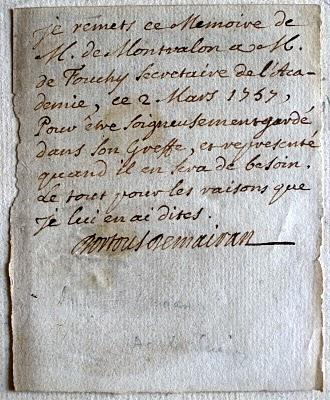 Je remets ce Memoire de
M. de Montvalon a M.
de Fouchy Secretaire de l'Aca-
demie, ce 2 Mars 1757,
Pour être soigneusement gardé
dans son Greffe, et representé
quand il en sera de besoin.
Le tout pour les raisons que
Je lui en ai dites.
Dortous de mairan